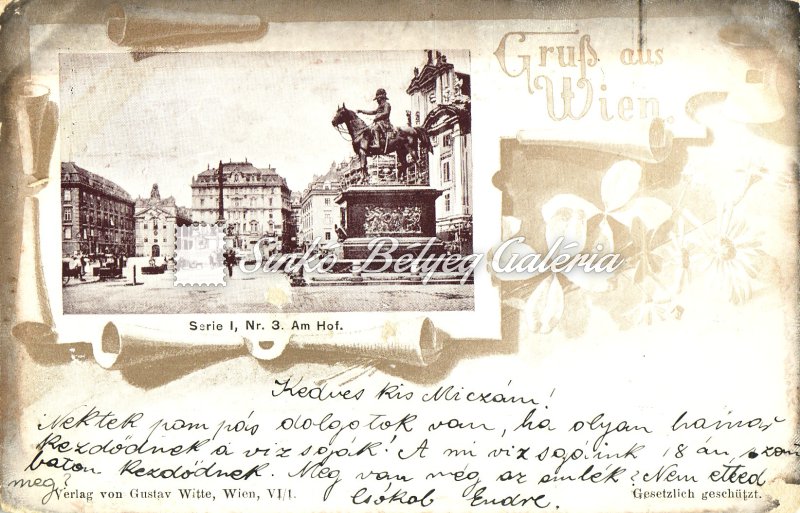 Gruß aus
Wien
Sinkó Bélyeg Galéria
Serie I, Nr. 3. Am Hof.
Kedves kis Miczám!
Nektek pampás dolgotok van, ha olyan hamar
kezdődnek a vizsgák! A mi vizsgáink 18 án, szom
baton kezdődnek. Meg van még az emlék? Nem etted
meg?
Csókol Endre.
Verlag von Gustav Witte, Wien, VI/1.
Gesetzlich geschützt.